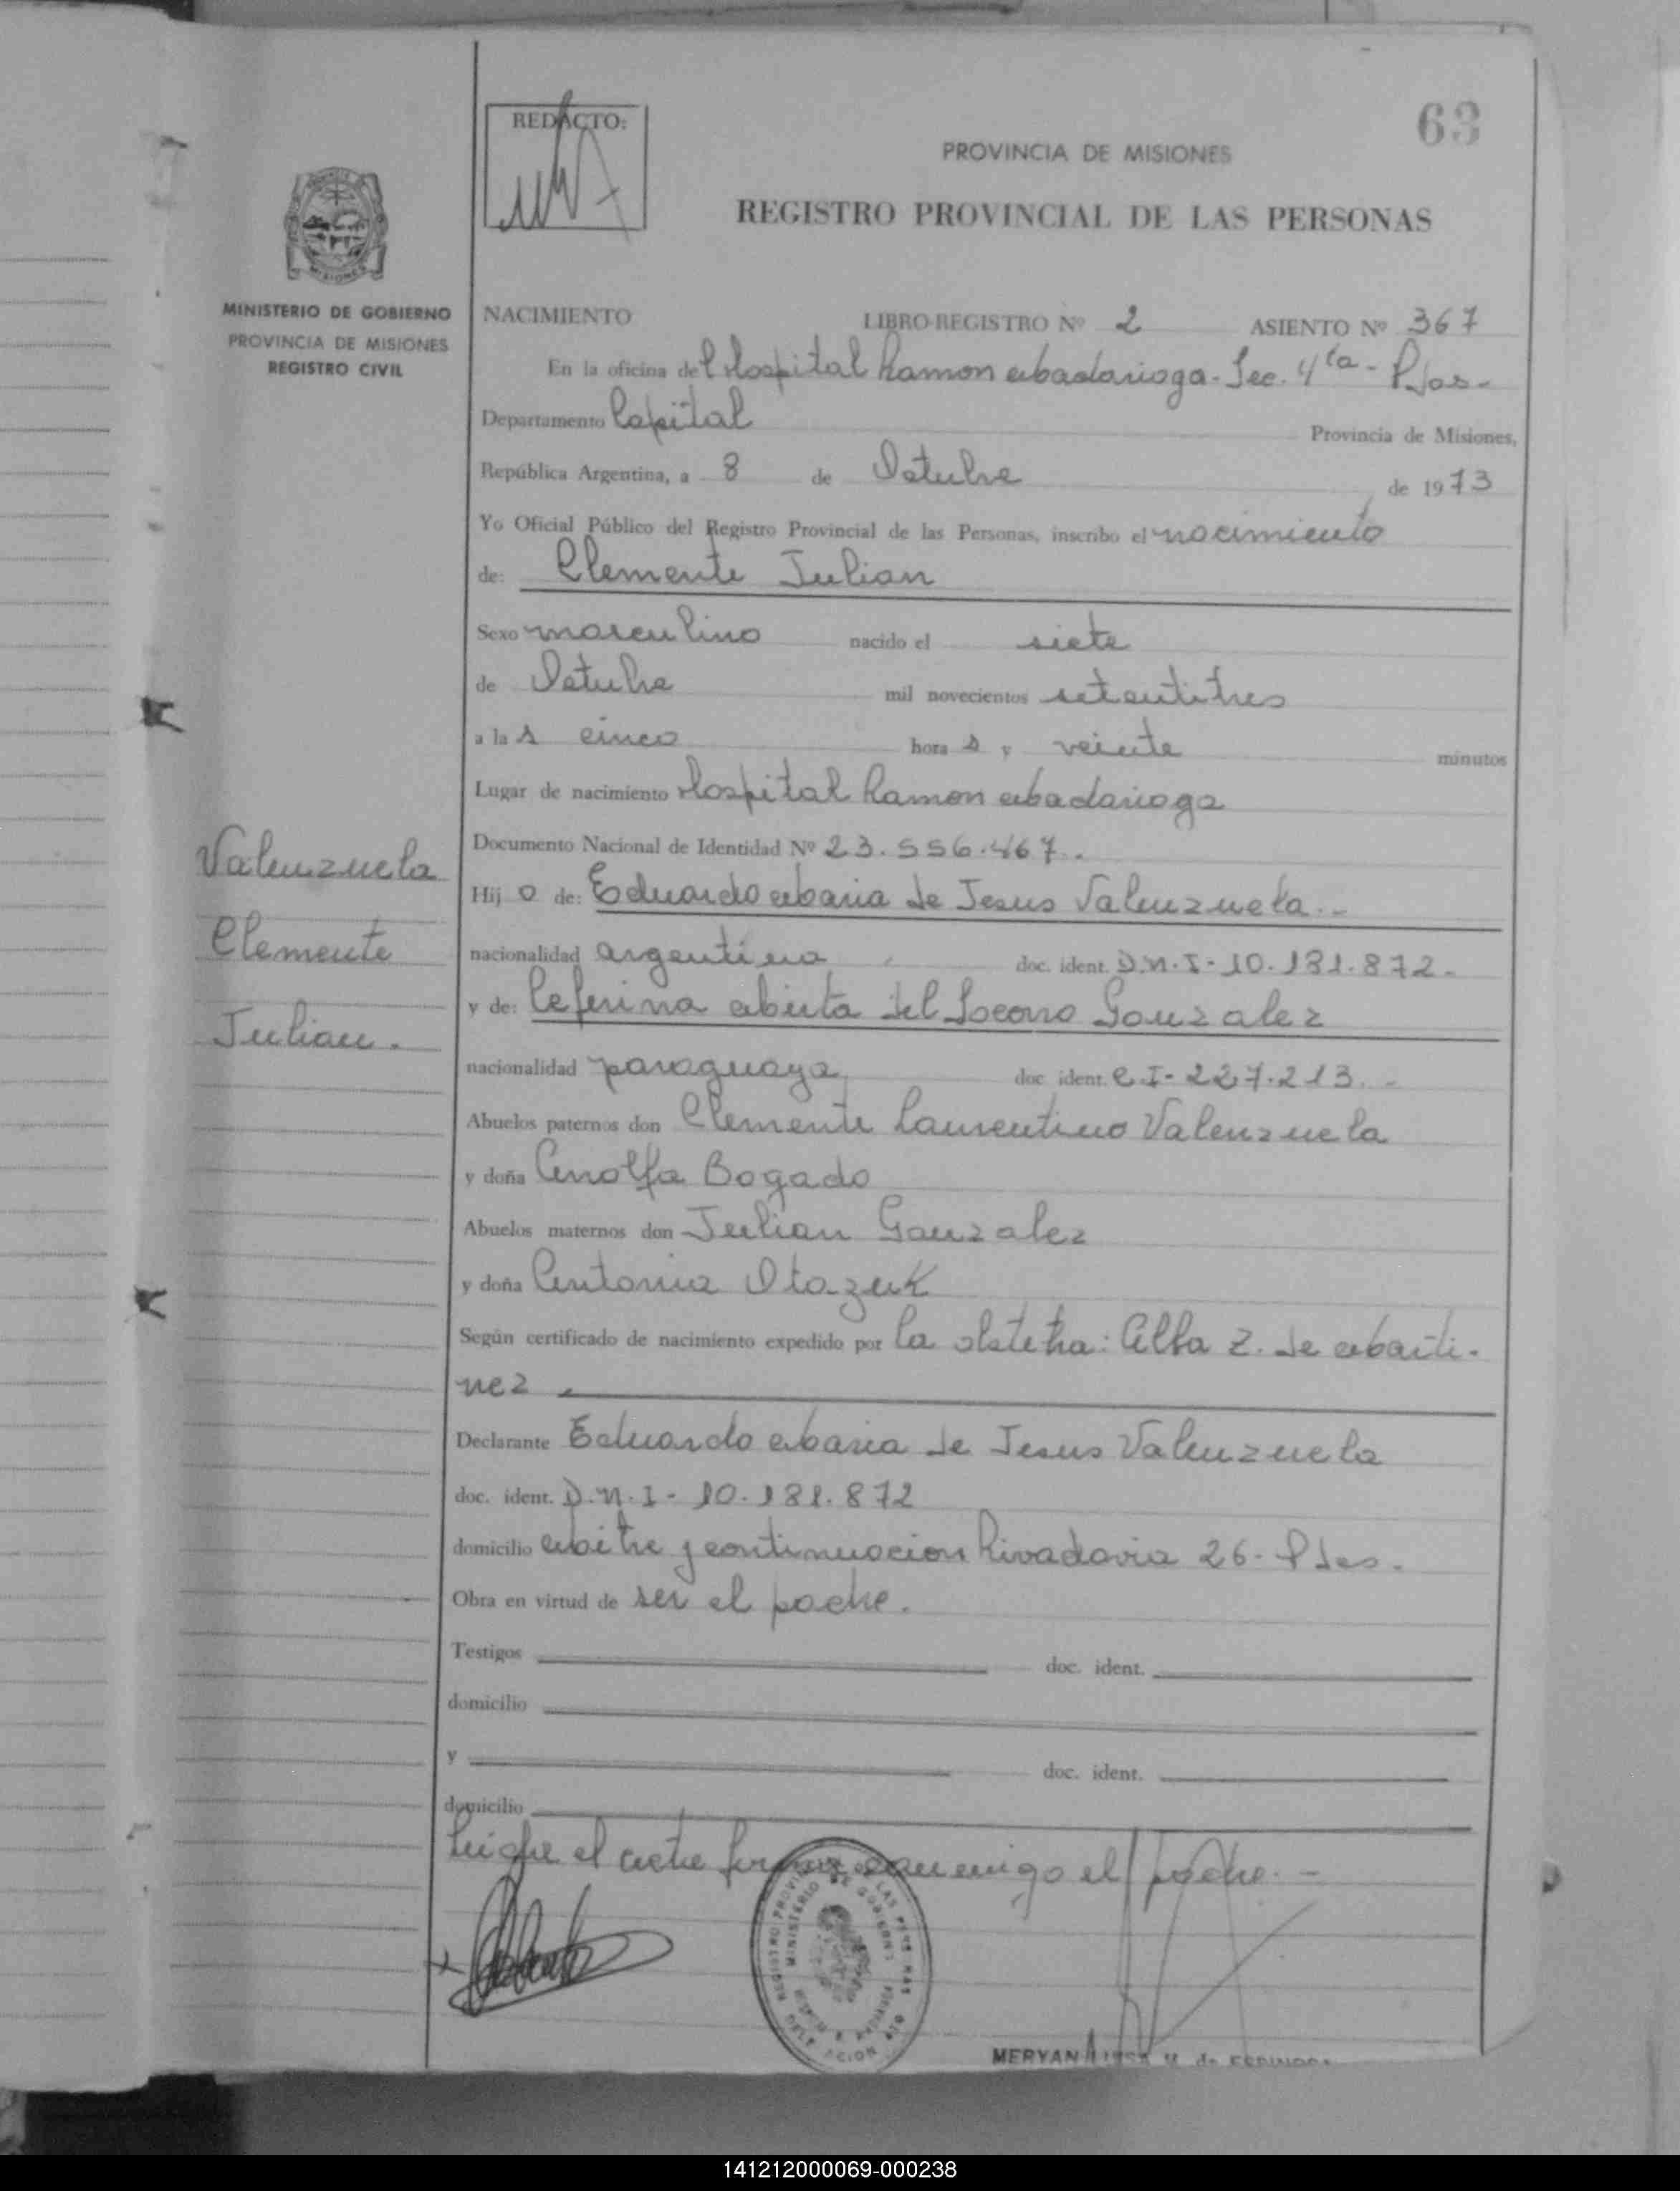 63
REDACTO:
PROVINCIA DE MISIONES
REGISTRO PROVINCIAL DE LAS PERSONAS
MINISTERIO DE GOBIERNO
PROVINCIA DE MISIONES
REGISTRO CIVIL
NACIMIENTO LIBRO-REGISTRO Nº 2 ASIENTO Nº 367
En la oficina del Hospital Ramon Madariaga - Sec. 4ta - Pdas -
Departamento Capital Provincia de Misiones,
República Argentina, a 8 de Octubre de 1973
Yo Oficial Público del Registro Provincial de las Personas, inscribo el nacimiento
de: Clemente Julian
Sexo masculino nacido el siete
de Octubre mil novecientos setentitres
a las cinco horas y veinte minutos
Lugar de nacimiento Hospital Ramon Madariaga
Documento Nacional de Identidad Nº 23.556.467.
Valenzuela
Clemente
Julian.
Hijo de: Eduardo Maria de Jesus Valenzuela.-
nacionalidad argentina doc. ident. D.N.I- 10.181.872.
y de: Ceferina Mirta del Socorro Gonzalez
nacionalidad paraguaya doc. ident. C.I- 227.213.-
Abuelos paternos don Clemente Laurentino Valenzuela
y doña Bogado
Abuelos maternos don Julian Gonzalez
y doña Antonia
Según certificado de nacimiento expedido por la obstetra: Alba Z. de Marti-
nez.
Declarante Eduardo Maria de Jesus Valenzuela
doc. ident. D.N.I- 10.181.872
domicilio Mitre y continuacion Rivadavia 26- Pdas.
Obra en virtud de ser el padre.
Testigos doc. ident.
domicilio
y doc. ident.
domicilio
el acta firma conmigo el padre.-
REGISTRO PROVINCIAL DE LAS PERSONAS
MINISTERIO DE GOBIERNO
DELEGACION
MERYAN LUISA M. de
141212000069-000238